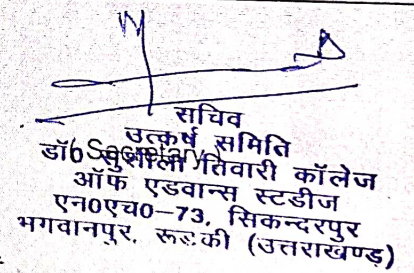 सचिव
उत्कर्ष समिति
(Secretary)
डॉ0 सुशीला तिवारी कॉलेज
ऑफ एडवान्स स्टडीज
एन0एच0-73, सिकन्दरपुर
भगवानपुर, रूड़की (उत्तराखण्ड)